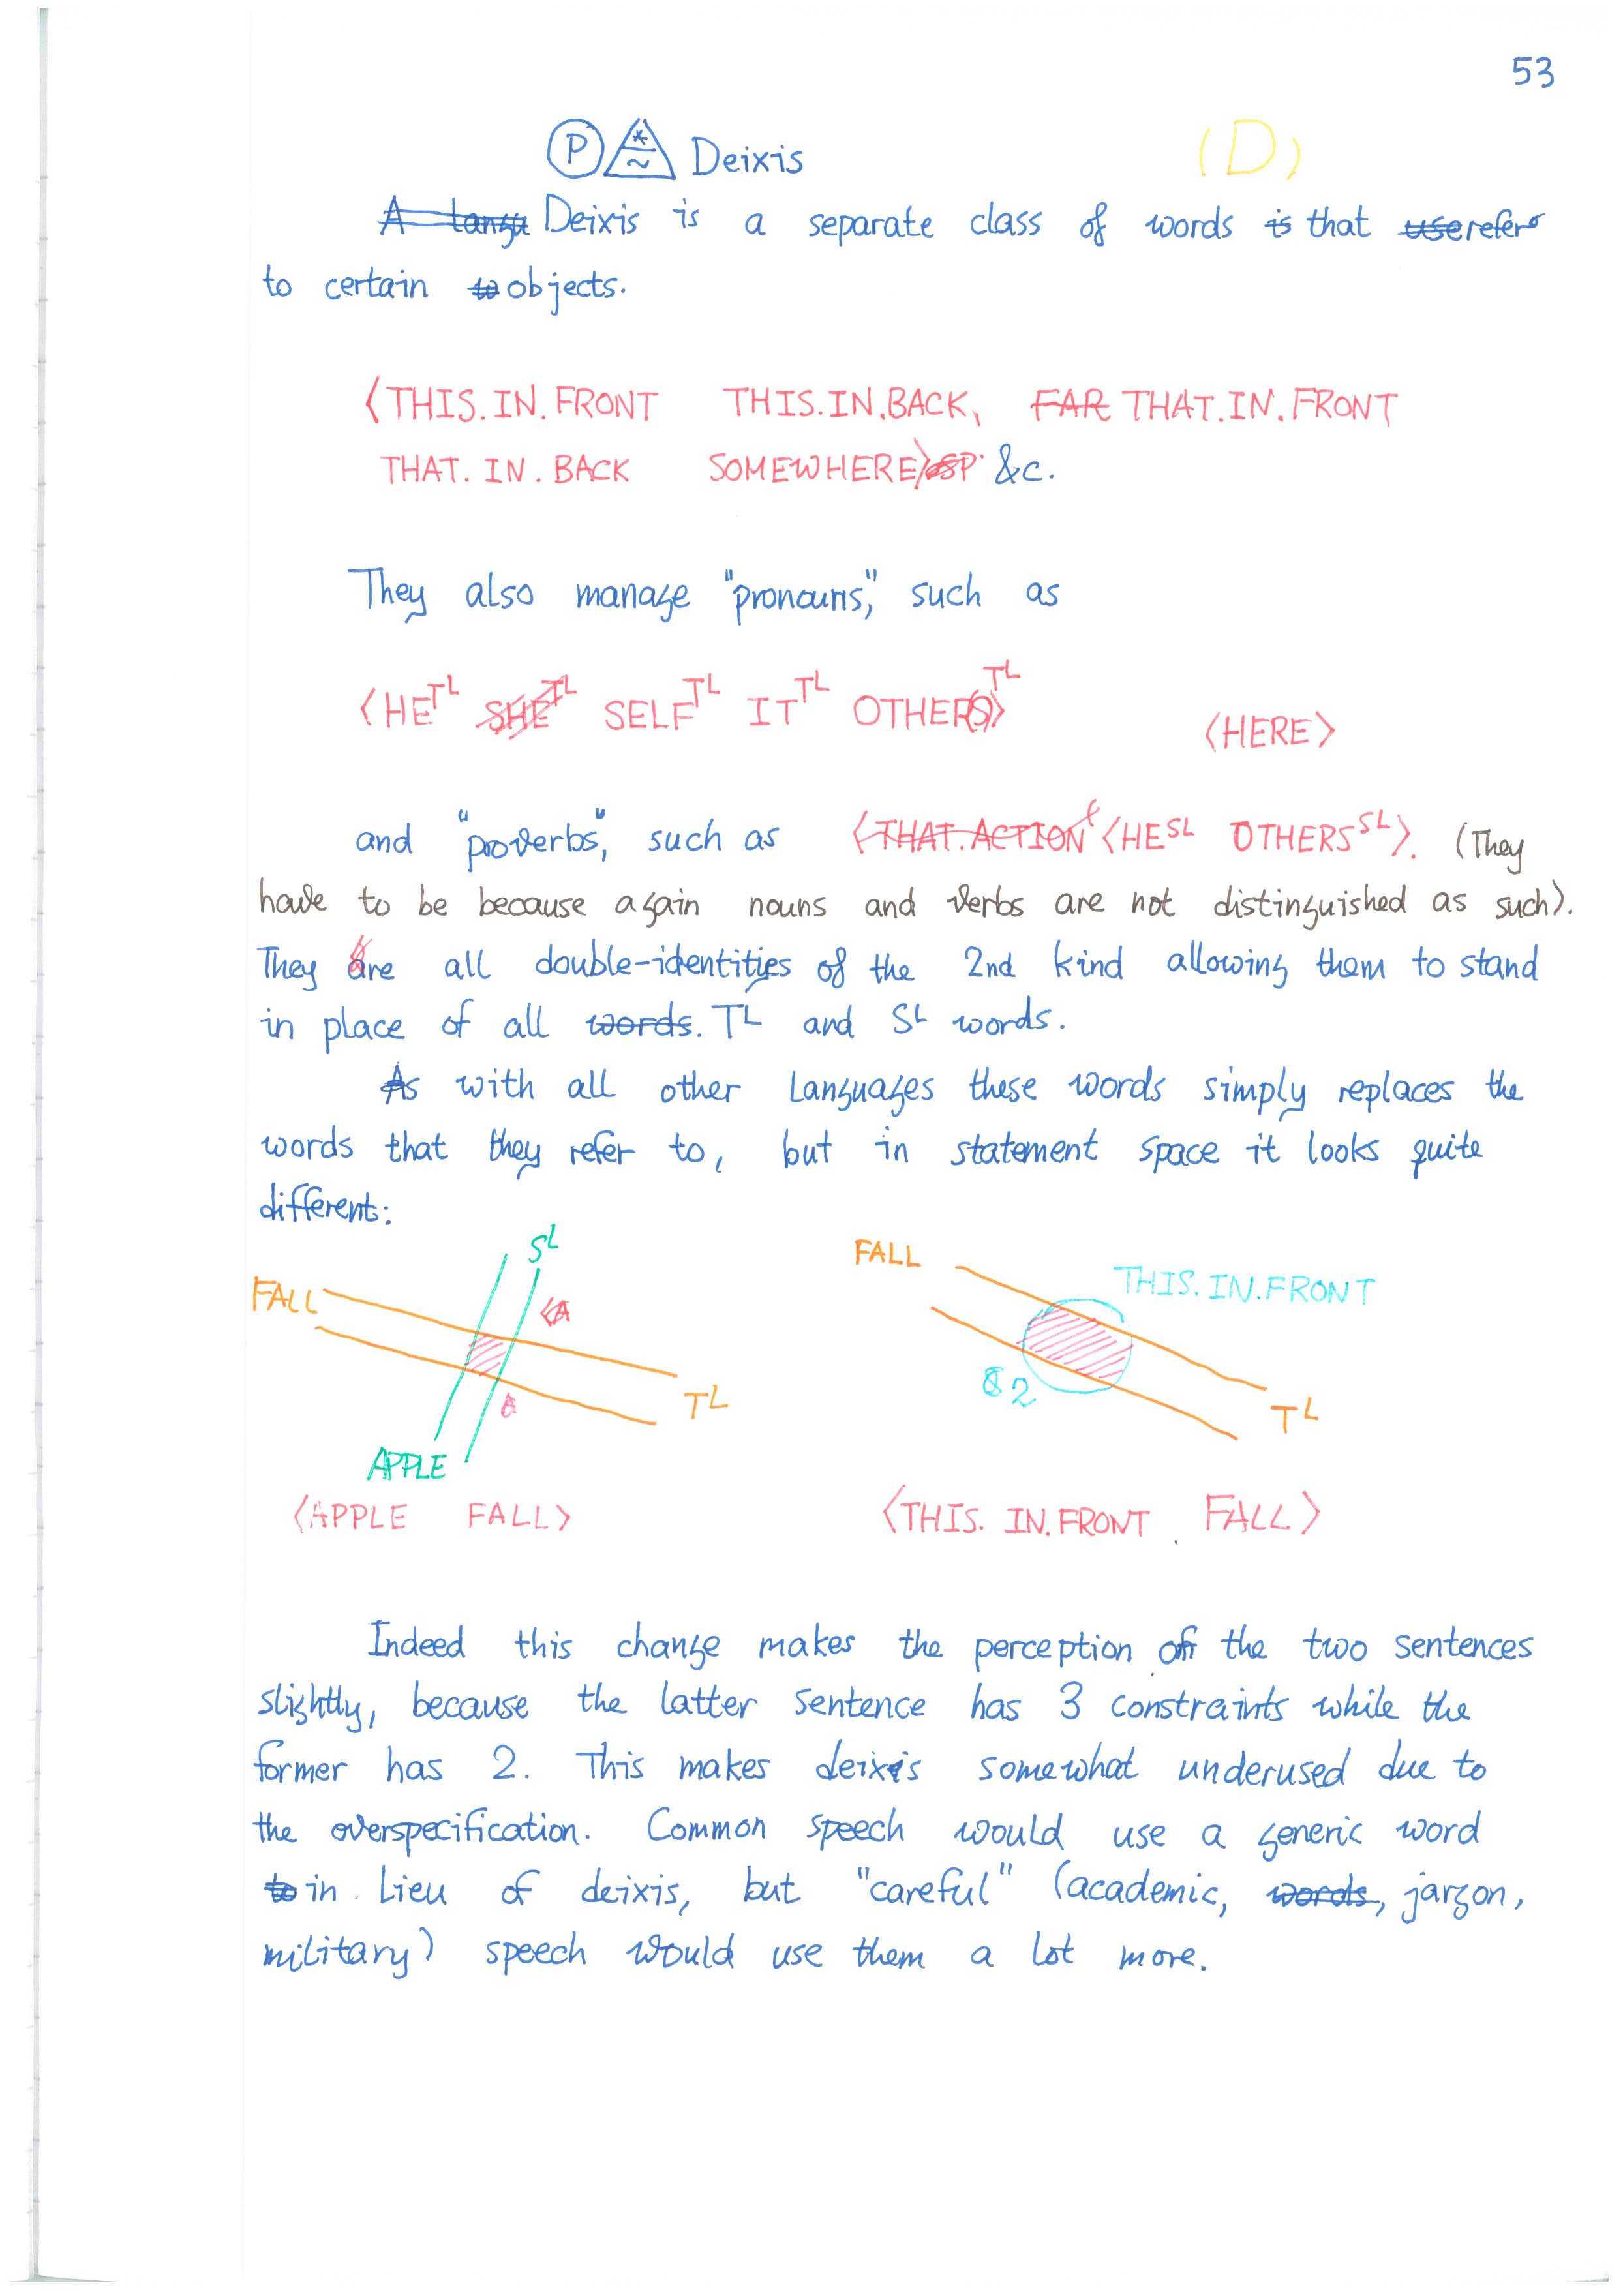 53
Ⓟ Deixis (D)
Deixis is a separate class of words that refer
to certain objects.
⟨THIS.IN.FRONT THIS.IN.BACK, THAT.IN.FRONT
THAT.IN.BACK SOMEWHERE⟩ &c.
They also manage "pronouns," such as
⟨HE^TL SELF^TL IT^TL OTHER(S)⟩^TL
⟨HERE⟩
and "proverbs", such as ⟨HE^SL OTHERS^SL⟩. (They
have to be because again nouns and verbs are not distinguished as such).
They are all double-identities of the 2nd kind allowing them to stand
in place of all T^L and S^L words.
As with all other languages these words simply replaces the
words that they refer to, but in statement space it looks quite
different:
S^L
FALL
T^L
APPLE
⟨APPLE FALL⟩
FALL
THIS.IN.FRONT
2
T^L
⟨THIS.IN.FRONT FALL⟩
Indeed this change makes the perception of the two sentences
slightly, because the latter sentence has 3 constraints while the
former has 2. This makes deixis somewhat underused due to
the overspecification. Common speech would use a generic word
in lieu of deixis, but "careful" (academic, jargon,
military) speech would use them a lot more.